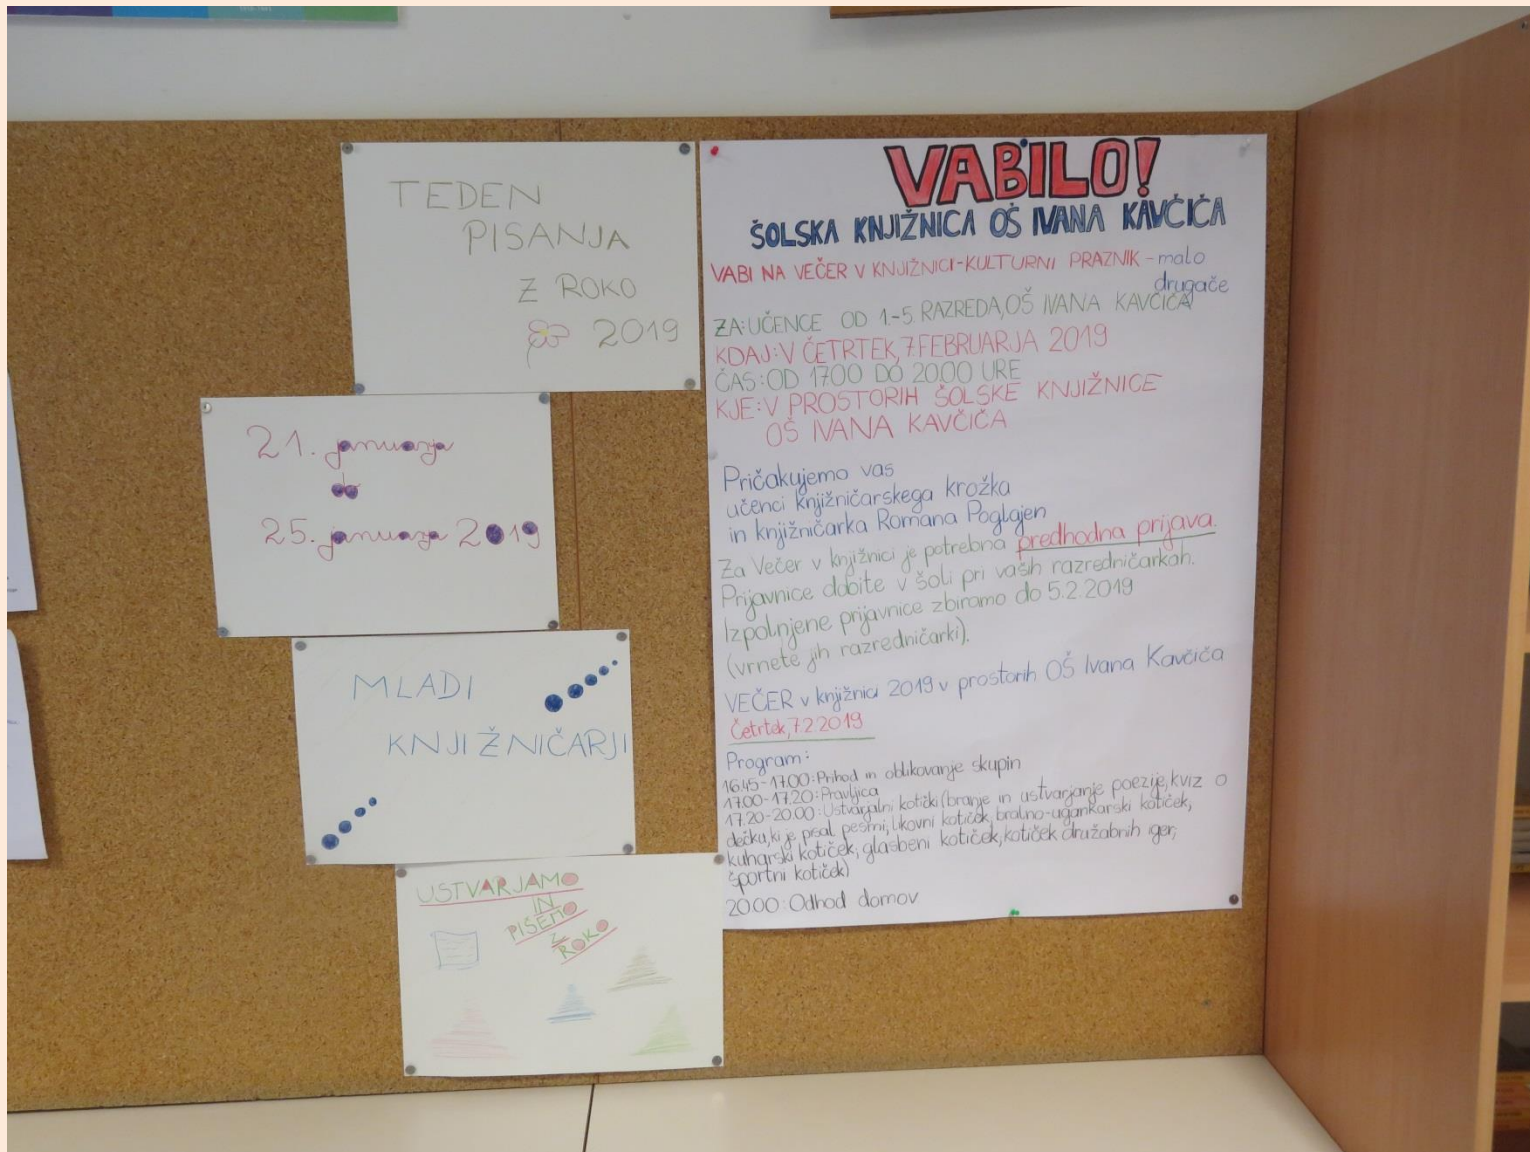 TEDEN
PISANJA
Z ROKO
2019
21. januarja
25. januarja 2019
MLADI
KNJIŽNIČARJI
USTVARJAMO
IN
PIŠEMO
Z
ROKO
VABILO!
ŠOLSKA KNJIŽNICA OŠ IVANA KAVČIČA
VABI NA VEČER V KNJIŽNICI-KULTURNI PRAZNIK - malo
drugače
ZA: UČENCE OD 1.-5. RAZREDA, OŠ IVANA KAVČIČA
KDAJ: V ČETRTEK, 7. FEBRUARJA 2019
ČAS: OD 17.00 DO 20.00 URE
KJE: V PROSTORIH ŠOLSKE KNJIŽNICE
OŠ IVANA KAVČIČA
Pričakujemo vas
učenci knjižničarskega krožka
in knjižničarka Romana Poglajen
Za Večer v knjižnici je potrebna predhodna prijava.
Prijavnice dobite v šoli pri vaših razredničarkah.
Izpolnjene prijavnice zbiramo do 5.2.2019
(vrnete jih razredničarki).
VEČER v knjižnici 2019 v prostorih OŠ Ivana Kavčiča
Četrtek, 7.2.2019
Program:
16.45-17.00: Prihod in oblikovanje skupin
17.00-17.20: Pravljica
17.20-20.00: Ustvarjalni kotički (branje in ustvarjanje poezije, kviz o
dečku, ki je psal pesmi, likovni kotiček, bralno-ugankarski kotiček,
kuharski kotiček, glasbeni kotiček, kotiček družabnih iger,
športni kotiček)
20.00: Odhod domov